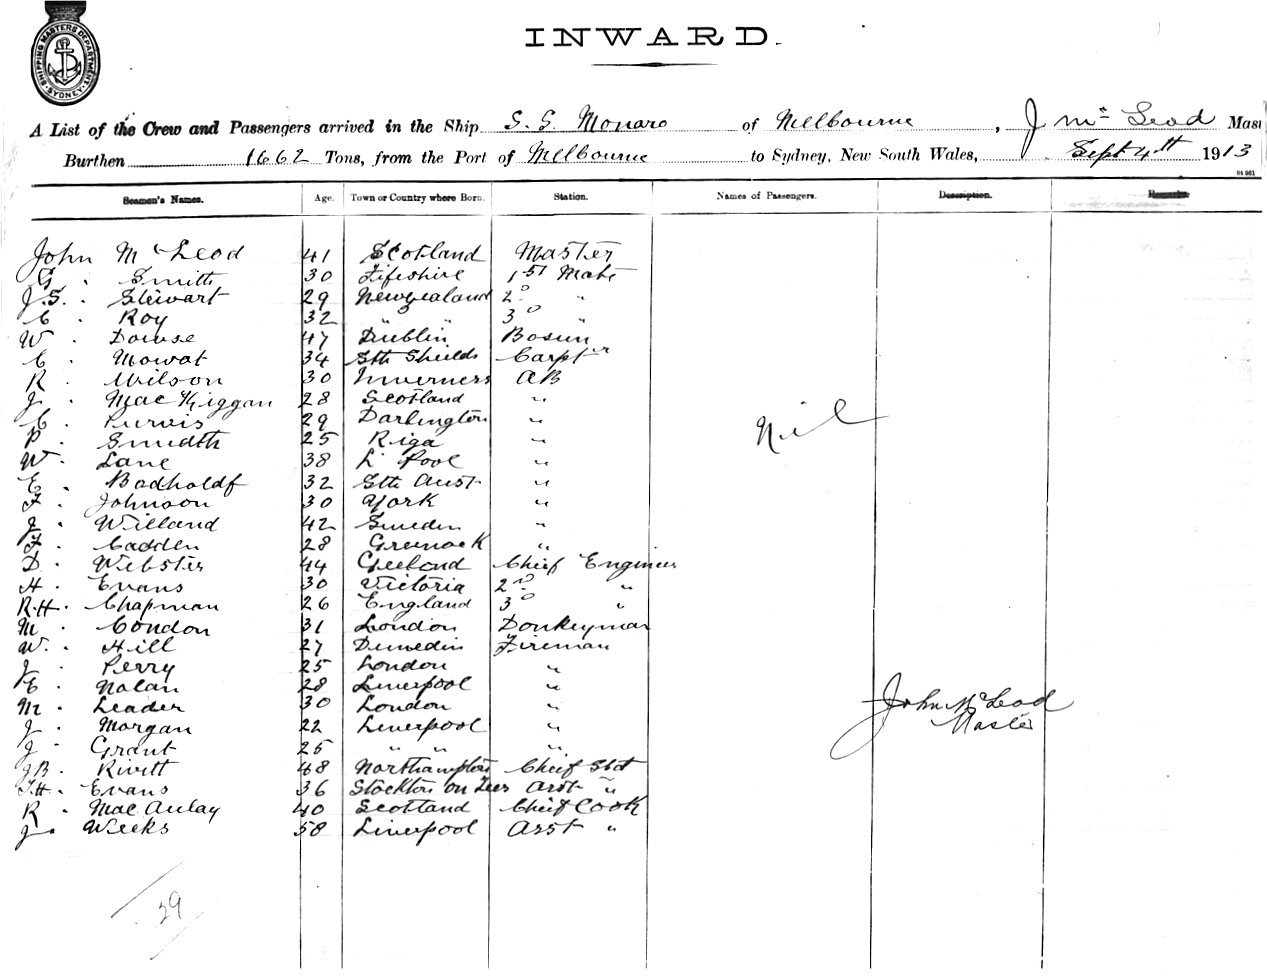 SHIPPING MASTERS DEPARTMENT
SYDNEY
INWARD.
A List of the Crew and Passengers arrived in the Ship S. S. Monaro of Melbourne, J McLeod Mast
Burthen 1662 Tons, from the Port of Melbourne to Sydney, New South Wales, Sept 4th 1913
St 961
Seamen's Names. Age. Town or Country where Born. Station. Names of Passengers. Description. Remarks.
John McLeod 41 Scotland Master
G. Smith 30 Fifeshire 1st Mate
J.S. Stewart 29 Newzealand 2D "
C. Roy 32 " " 3D "
W. Dowse 47 Dublin Bosun
C. Mowat 34 Sth Shields Carptr
R. Wilson 30 Inverness AB
J. MacKiggan 28 Scotland "
C. Purvis 29 Darlington "
P. Smidth 25 Riga "
W. Lane 38 L'Pool "
E. Badholdf 32 Sth Aust "
F. Johnson 30 York "
J. Willand 42 Sweden "
F. Cadden 28 Greenock "
D. Webster 44 Geelond Chief Engineer
H. Evans 30 Victoria 2nd "
R.H. Chapman 26 England 3D "
M. Condon 31 London Donkeyman
W. Hill 27 Dunedin Fireman
J. Perry 25 London "
E. Nolan 28 Liverpool "
M. Leader 30 London "
J. Morgan 22 Liverpool "
J. Grant 25 " " "
J.B. Rivett 48 Northampton Chief Std
T.H. Evans 36 Stockton on Tees Asst "
R. MacAulay 40 Scotland Chief Cook
J. Weeks 58 Liverpool Asst "
Nil
John McLeod
Master
29